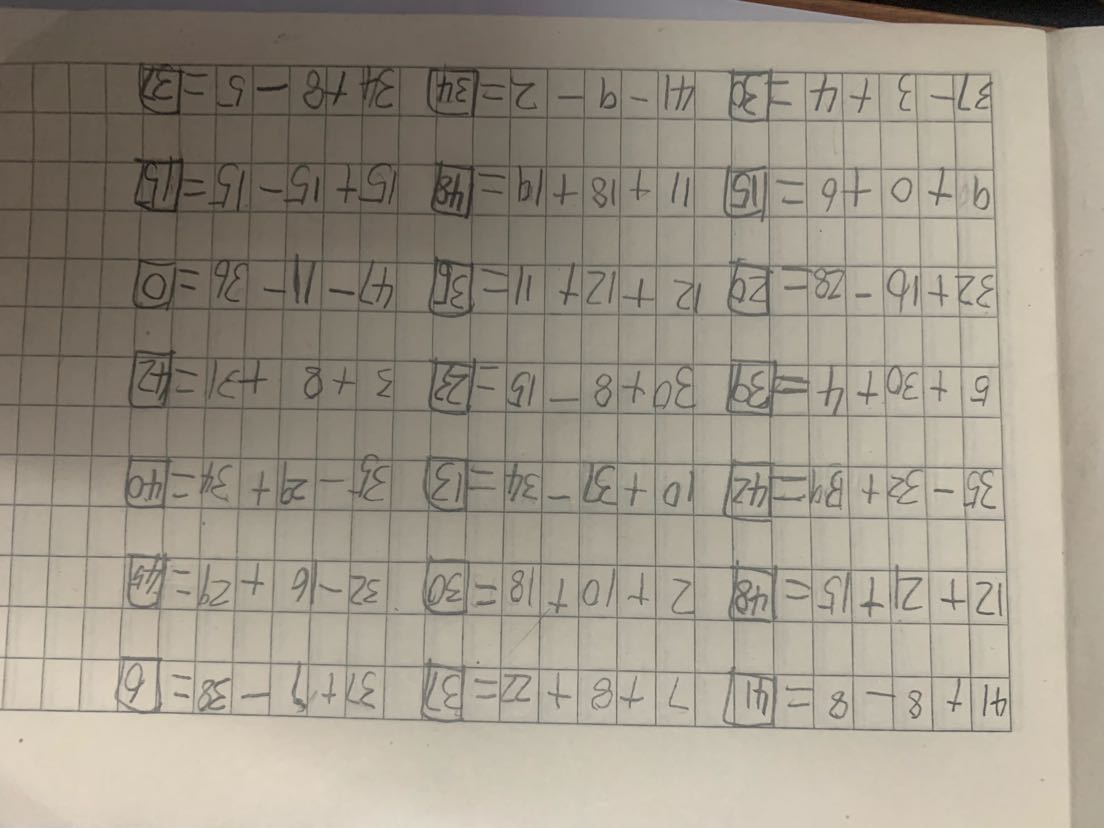 41+8-8=41 7+8+22=37 37+7-38=6
12+21+15=48 2+10+18=30 32-16+29=45
35-32+39=42 10+37-34=13 35-29+34=40
5+30+4=39 30+8-15=23 3+8+31=42
32+16-28=20 12+12+11=35 47-11-36=0
9+0+6=15 11+18+19=48 15+15-15=15
37-3+4=30 41-9-2=34 34+8-5=37